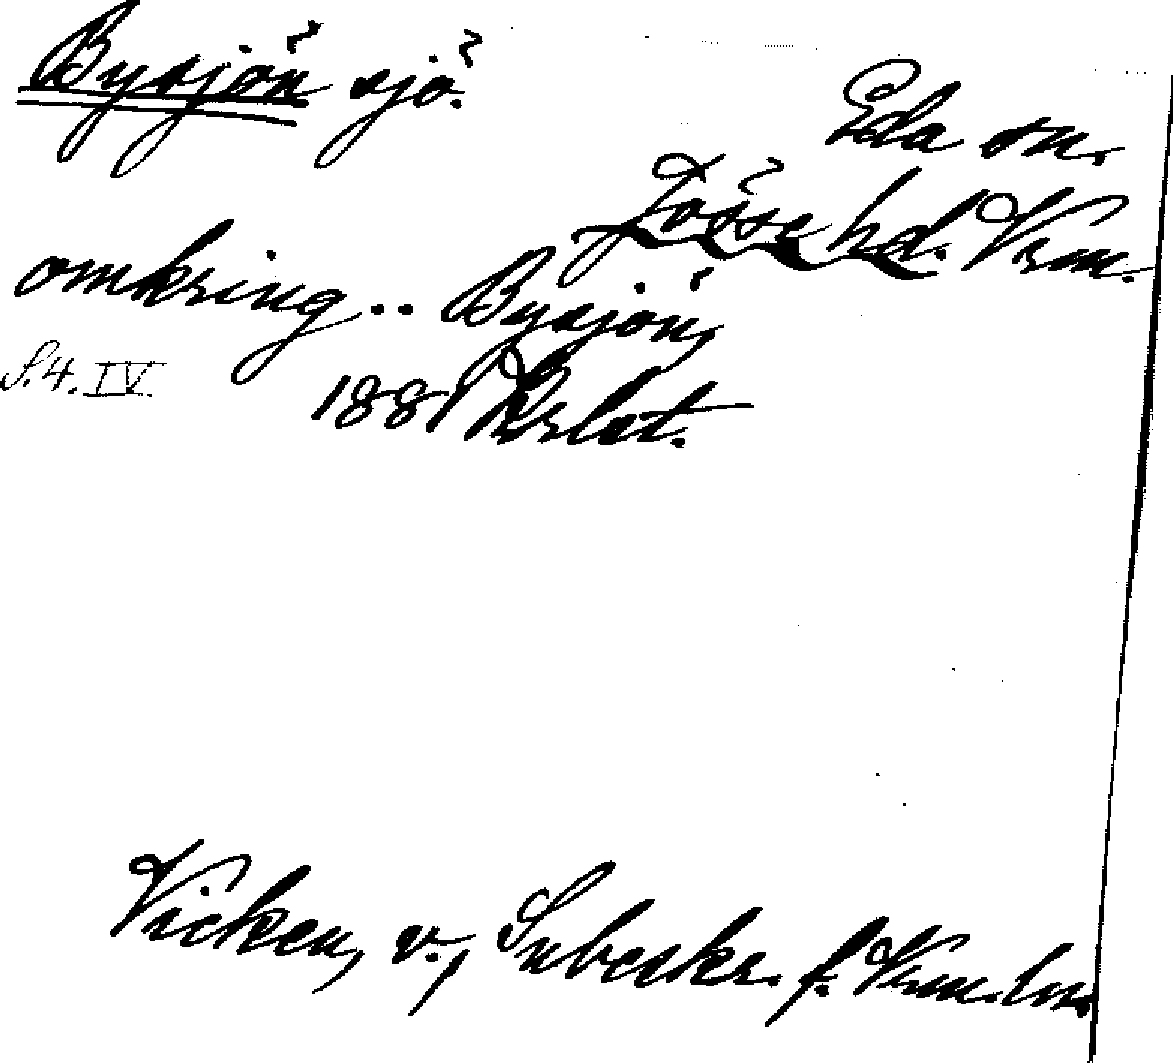 Bysjön sjö.
Eda sn.
Jösse hd. Vrm.
omkring .. Bysjön,
S.4.IV.
1881 Krlat.
Vicken, v., Snbeskr. f. Vrm. ln.